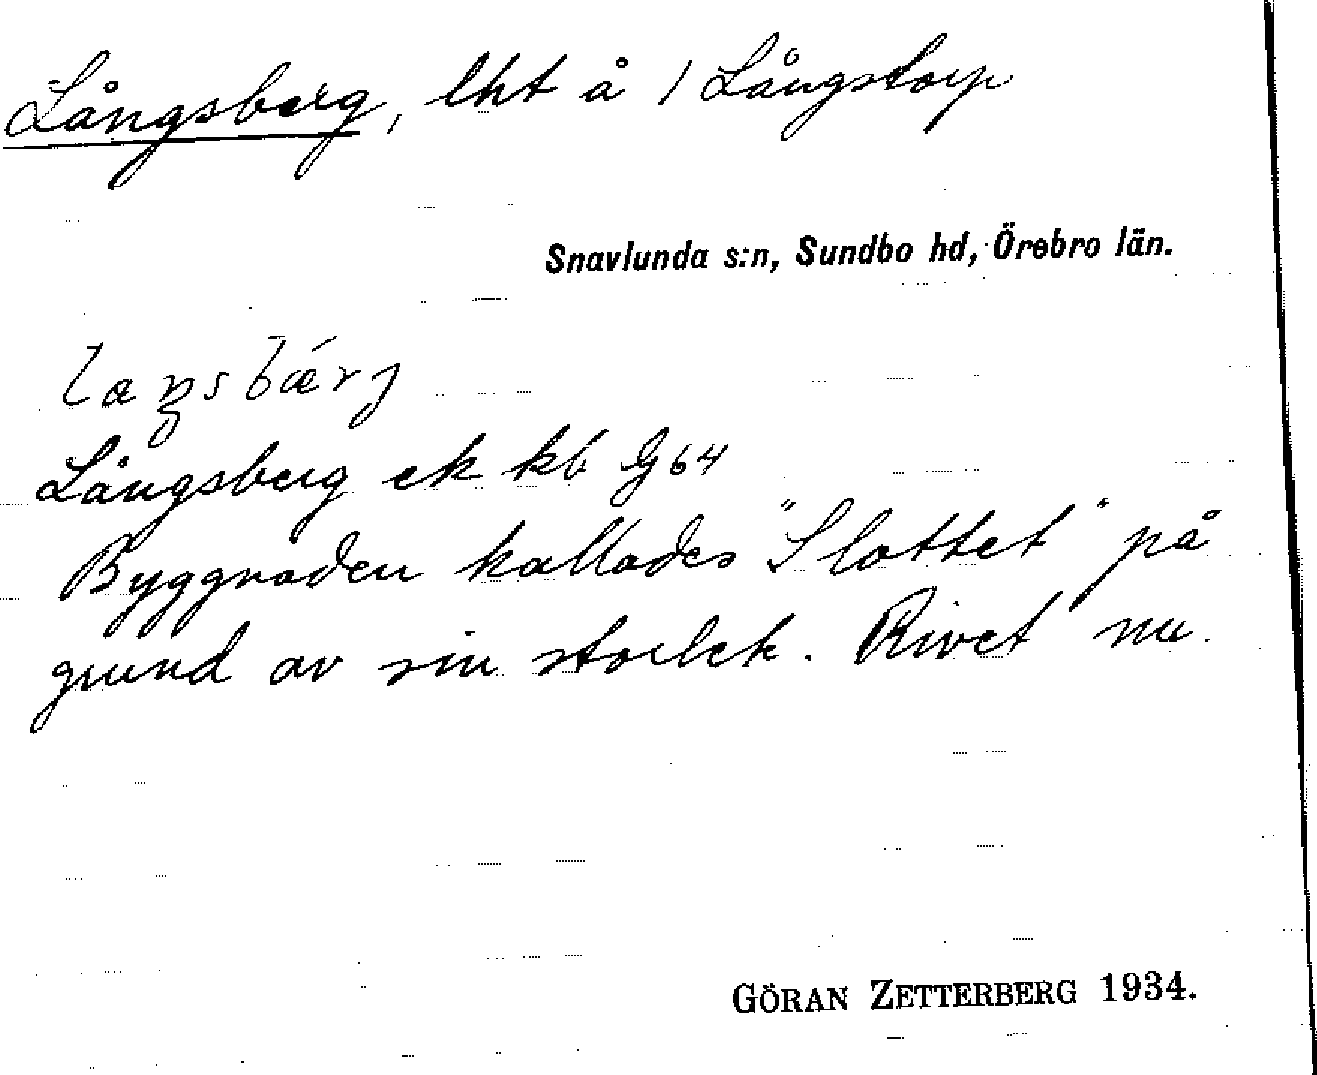 Långsberg, lht å 1 Långstorp
Snavlunda s:n, Sundbo hd, Örebro län.
Långsberg ek kb G 64
Byggnaden kallades "Slottet" på
grund av sin storlek. Rivet nu.
GÖRAN ZETTERBERG 1934.